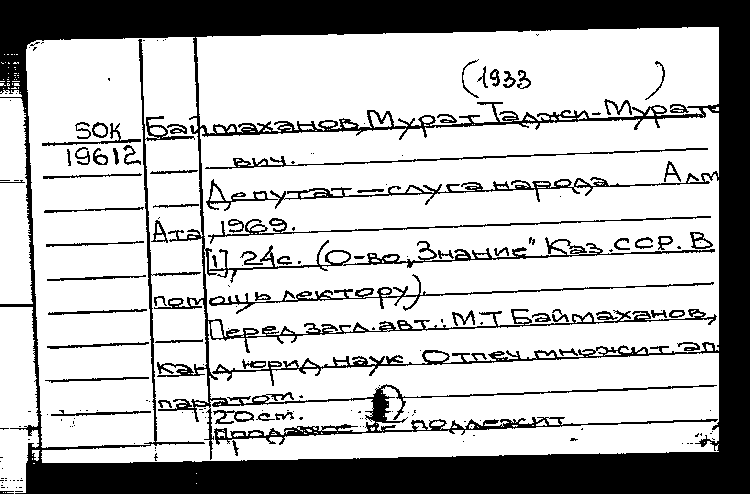 (1933 )
50К Баймаханов, Мурат Таджи-Мурато
19612 вич.
Депутат — слуга народа. Алм
Ата, 1969.
[1], 24с. (О-во „Знание" Каз. ССР. В
помощь лектору).
Перед загл. авт.: М.Т Баймаханов,
канд. юрид. наук. Отпеч. множит. ап-
паратом.
20 см.
Продаже не подлежит.